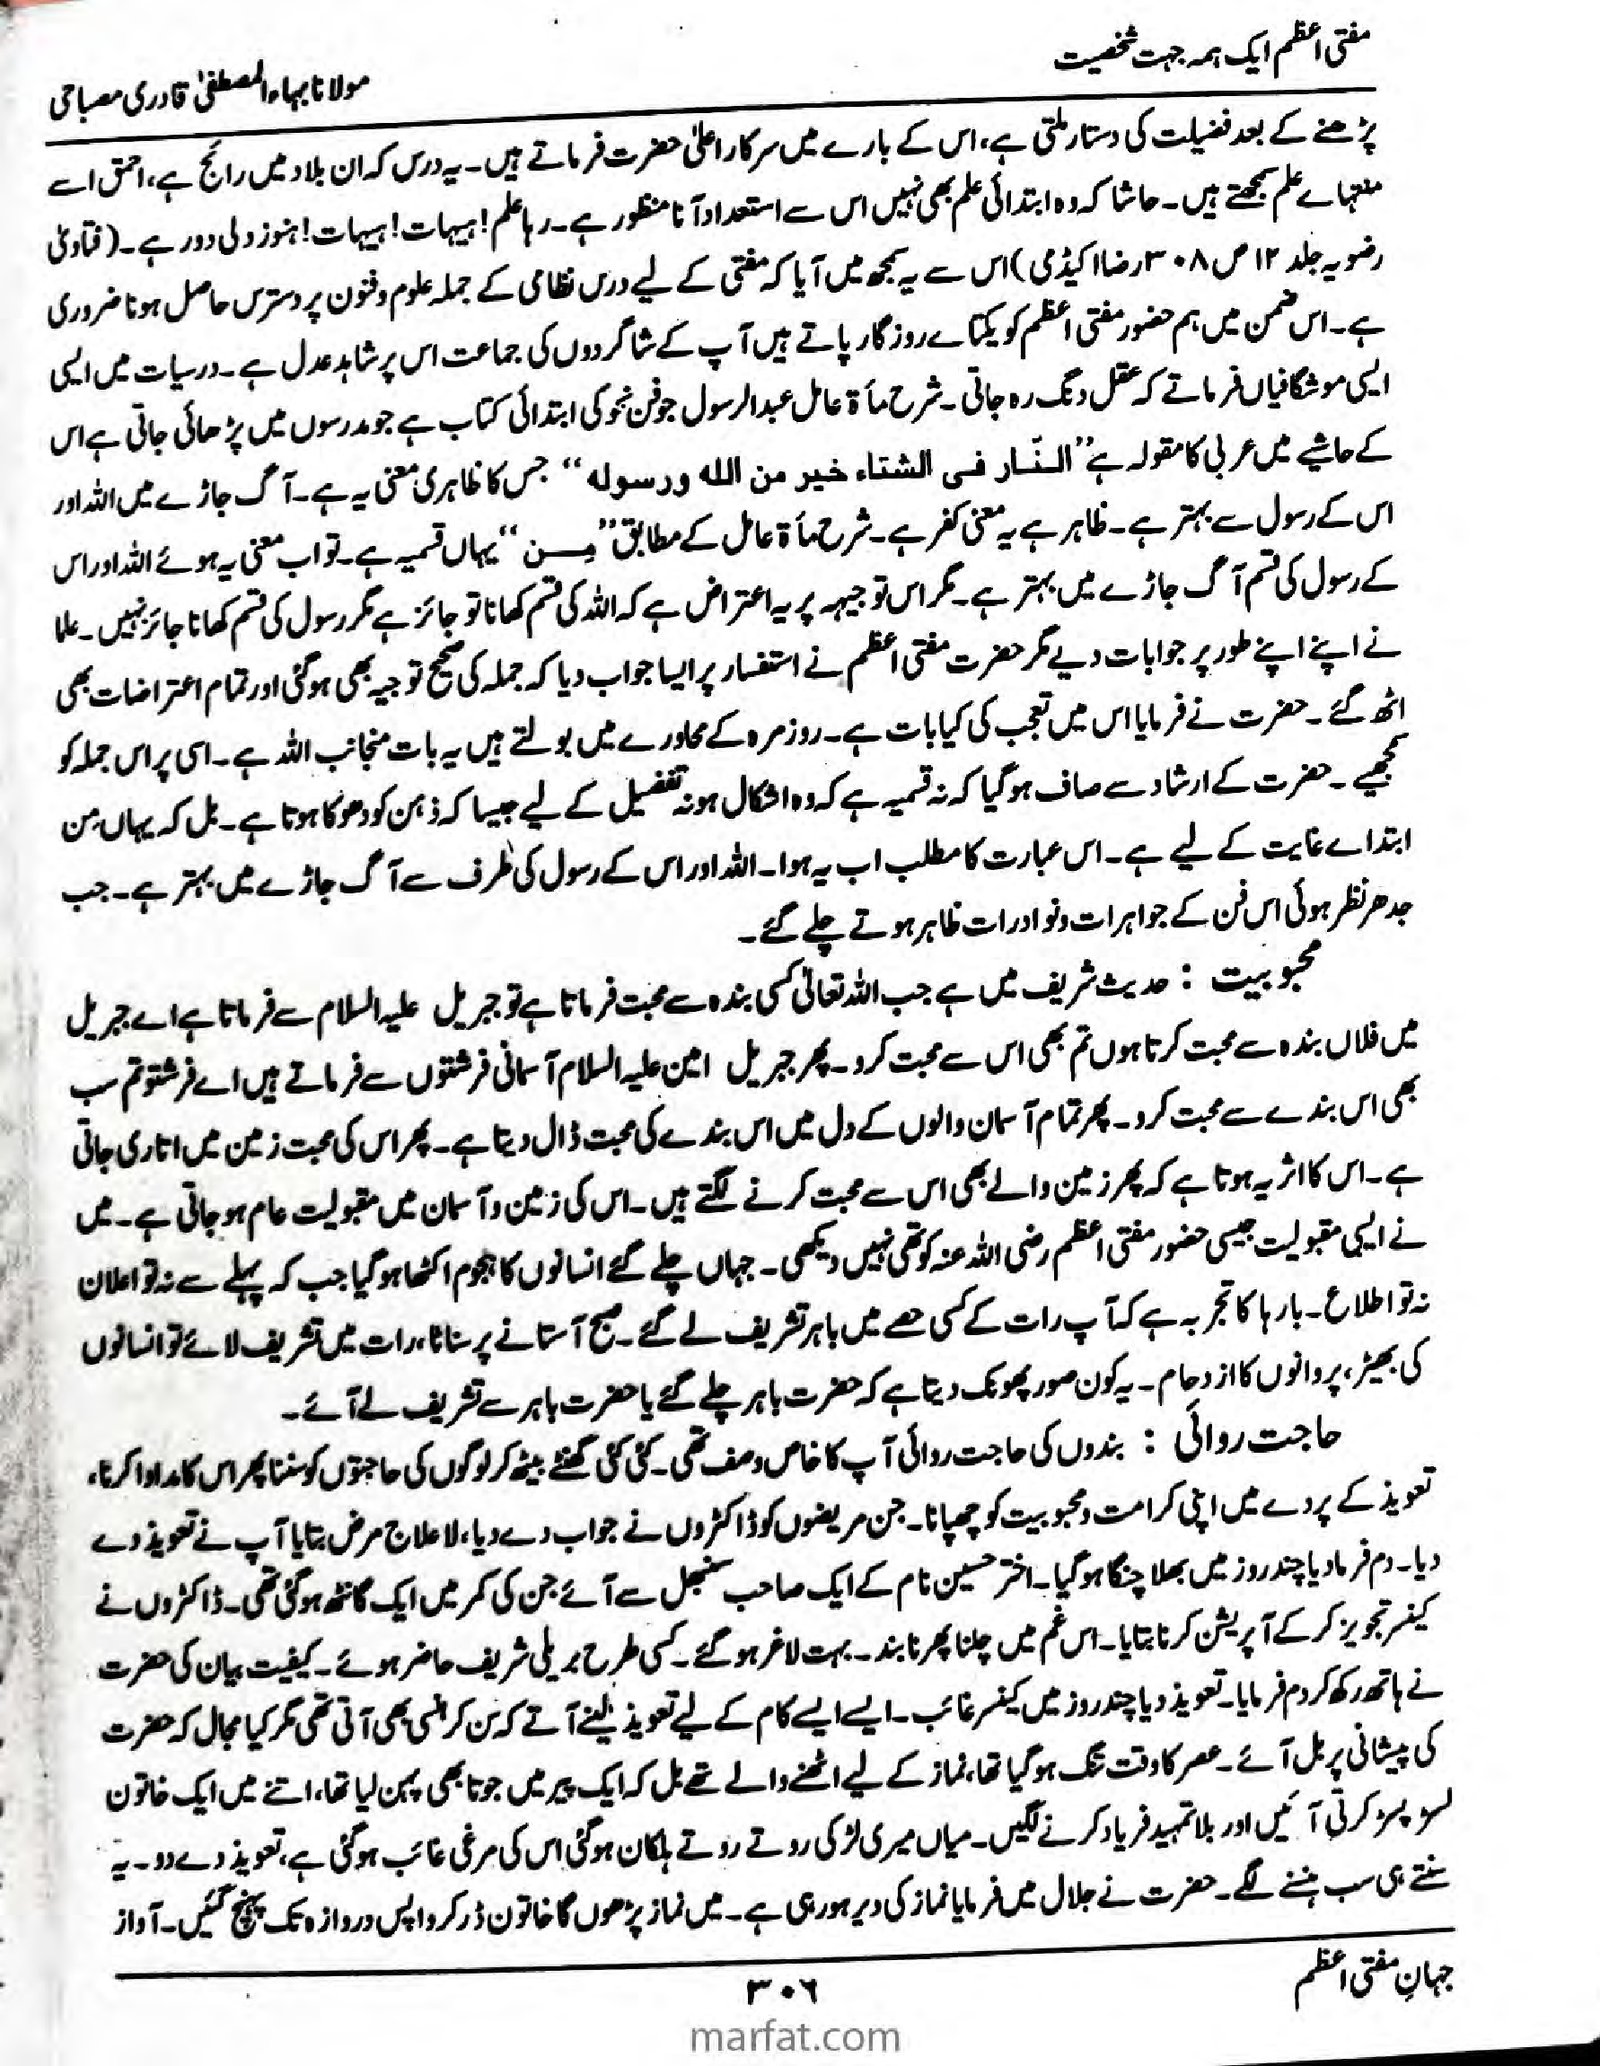 مفتی اعظم ایک ہمہ جہت شخصیت
مولانا بہاء المصطفیٰ قادری مصباحی
پڑھنے کے بعد فضیلت کی دستار ملتی ہے، اس کے بارے میں سرکار اعلیٰ حضرت فرماتے ہیں۔ یہ درس کہ ان بلاد میں رائج ہے، احمق اسے
منتہاے علم سمجھتے ہیں۔ حاشا کہ وہ ابتدائی علم بھی نہیں اس سے استعداد آنا منظور ہے۔ رہا علم! ہیہات! ہیہات! ہنوز دلی دور ہے۔ (فتاویٰ
رضویہ جلد ۱۲ ص ۳۰۸ رضا اکیڈمی) اس سے یہ سمجھ میں آیا کہ مفتی کے لیے درس نظامی کے جملہ علوم و فنون پر دسترس حاصل ہونا ضروری
ہے۔ اس ضمن میں ہم حضور مفتی اعظم کو یکتاے روزگار پاتے ہیں آپ کے شاگردوں کی جماعت اس پر شاہد عدل ہے۔ درسیات میں ایسی
ایسی موشگافیاں فرماتے کہ عقل دنگ رہ جاتی۔ شرح مأۃ عامل عبدالرسول جو فن نحو کی ابتدائی کتاب ہے جو مدرسوں میں پڑھائی جاتی ہے اس
کے حاشیے میں عربی کا مقولہ ہے ”النّار فی الشتاء خیر من اللہ ورسولہ“ جس کا ظاہری معنی یہ ہے۔ آگ جاڑے میں اللہ اور
اس کے رسول سے بہتر ہے۔ ظاہر ہے یہ معنی کفر ہے۔ شرح مأۃ عامل کے مطابق ”مِن“ یہاں قسمیہ ہے۔ تو اب معنی یہ ہوئے اللہ اور اس
کے رسول کی قسم آگ جاڑے میں بہتر ہے۔ مگر اس توجیہہ پر یہ اعتراض ہے کہ اللہ کی قسم کھانا تو جائز ہے مگر رسول کی قسم کھانا جائز نہیں۔ علما
نے اپنے اپنے طور پر جوابات دیے مگر حضرت مفتی اعظم نے استفسار پر ایسا جواب دیا کہ جملہ کی صحیح توجیہ بھی ہوگئی اور تمام اعتراضات بھی
اٹھ گئے۔ حضرت نے فرمایا اس میں تعجب کی کیا بات ہے۔ روزمرہ کے محاورے میں بولتے ہیں یہ بات منجانب اللہ ہے۔ اسی پر اس جملہ کو
سمجھیے۔ حضرت کے ارشاد سے صاف ہوگیا کہ نہ قسمیہ ہے کہ وہ اشکال ہو نہ تفضیل کے لیے جیسا کہ ذہن کو دھوکا ہوتا ہے۔ بل کہ یہاں مِن
ابتداے غایت کے لیے ہے۔ اس عبارت کا مطلب اب یہ ہوا۔ اللہ اور اس کے رسول کی طرف سے آگ جاڑے میں بہتر ہے۔ جب
جدھر نظر ہوئی اس فن کے جواہرات و نوادرات ظاہر ہوتے چلے گئے۔
محبوبیت : حدیث شریف میں ہے جب اللہ تعالیٰ کسی بندہ سے محبت فرماتا ہے تو جبریل علیہ السلام سے فرماتا ہے اے جبریل
میں فلاں بندہ سے محبت کرتا ہوں تم بھی اس سے محبت کرو۔ پھر جبریل امین علیہ السلام آسمانی فرشتوں سے فرماتے ہیں اے فرشتو تم سب
بھی اس بندے سے محبت کرو۔ پھر تمام آسمان والوں کے دل میں اس بندے کی محبت ڈال دیتا ہے۔ پھر اس کی محبت زمین میں اتاری جاتی
ہے۔ اس کا اثر یہ ہوتا ہے کہ پھر زمین والے بھی اس سے محبت کرنے لگتے ہیں۔ اس کی زمین و آسمان میں مقبولیت عام ہو جاتی ہے۔ میں
نے ایسی مقبولیت جیسی حضور مفتی اعظم رضی اللہ عنہ کو تھی نہیں دیکھی۔ جہاں چلے گئے انسانوں کا ہجوم اکٹھا ہوگیا جب کہ پہلے سے نہ تو اعلان
نہ تو اطلاع۔ بارہا کا تجربہ ہے کہ آپ رات کے کسی حصے میں باہر تشریف لے گئے۔ صبح آستانے پر سناٹا، رات میں تشریف لائے تو انسانوں
کی بھیڑ، پروانوں کا ازدحام۔ یہ کون صور پھونک دیتا ہے کہ حضرت باہر چلے گئے یا حضرت باہر سے تشریف لے آئے۔
حاجت روائی : بندوں کی حاجت روائی آپ کا خاص وصف تھی۔ کئی کئی گھنٹے بیٹھ کر لوگوں کی حاجتوں کو سننا پھر اس کا مداوا کرنا،
تعویذ کے پردے میں اپنی کرامت و محبوبیت کو چھپانا۔ جن مریضوں کو ڈاکٹروں نے جواب دے دیا، لاعلاج مرض بتایا آپ نے تعویذ دے
دیا۔ دم فرمادیا چند روز میں بھلا چنگا ہوگیا۔ اختر حسین نام کے ایک صاحب سنبھل سے آئے جن کی کمر میں ایک گانٹھ ہوگئی تھی۔ ڈاکٹروں نے
کینسر تجویز کرکے آپریشن کرنا بتایا۔ اس غم میں چلنا پھرنا بند۔ بہت لاغر ہوگئے۔ کسی طرح بریلی شریف حاضر ہوئے۔ کیفیت بیان کی حضرت
نے ہاتھ رکھ کر دم فرمایا۔ تعویذ دیا چند روز میں کینسر غائب۔ ایسے ایسے کام کے لیے تعویذ لینے آتے کہ سن کر ہنسی بھی آتی تھی مگر کیا مجال کہ حضرت
کی پیشانی پر بل آئے۔ عصر کا وقت تنگ ہوگیا تھا، نماز کے لیے اٹھنے والے تھے بل کہ ایک پیر میں جوتا بھی پہن لیا تھا، اتنے میں ایک خاتون
لسڑ پسڑ کرتی آئیں اور بلا تمہید فریاد کرنے لگیں۔ میاں میری لڑکی روتے روتے ہلکان ہوگئی اس کی مرغی غائب ہوگئی ہے، تعویذ دے دو۔ یہ
سنتے ہی سب ہنسنے لگے۔ حضرت نے جلال میں فرمایا نماز کی دیر ہورہی ہے۔ میں نماز پڑھوں گا خاتون ڈر کر واپس دروازہ تک پہنچ گئیں۔ آواز
جہانِ مفتی اعظم
۳۰۶
marfat.com